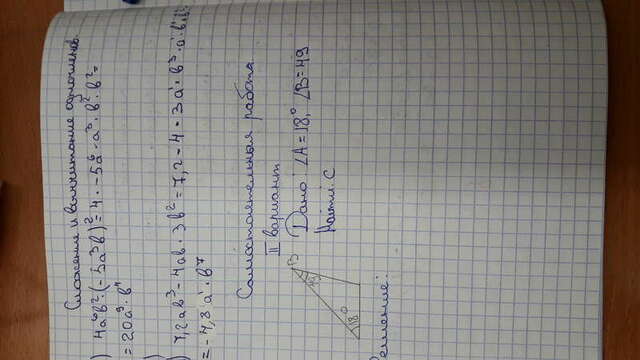 Сложение и вычитание одночленов.
) 4a⁶b²·(-5a³b)² = 4·-5a⁶·a³·b²·b²=
= 20a⁹·b⁴
)
) 7,2ab³ - 4ab·3b² = 7,2 - 4·3a¹·b³·a¹·b¹·b²
= -4,3a¹·b⁷
Самостоятельная работа.
II вариант
Дано: ∠A=18,° ∠B=49
Найти: C
B
49
18°
Решение: